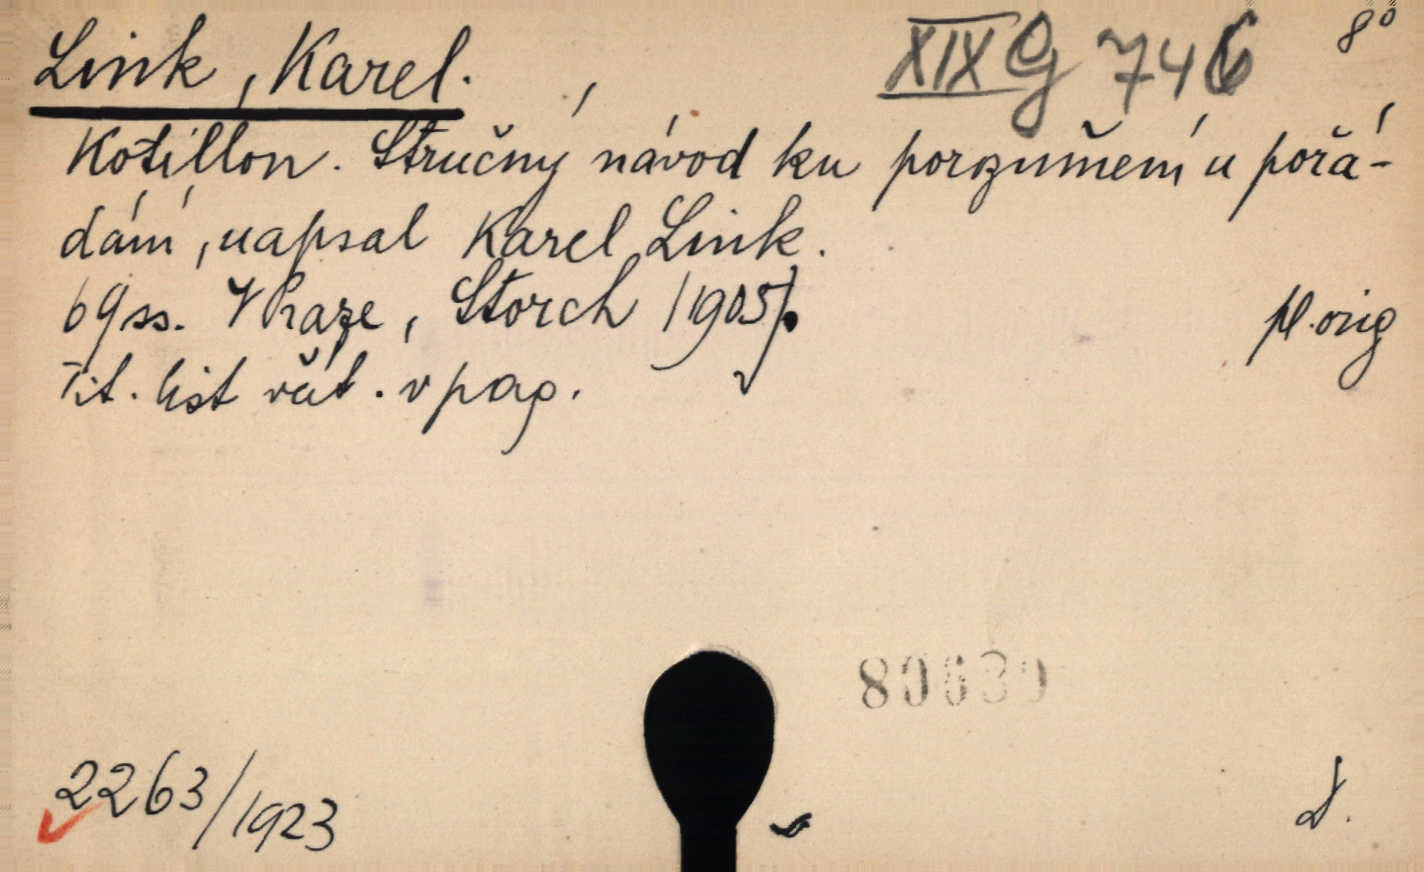 Link, Karel.
XIX G 746
8°
Kotillon. Stručný návod ku porozumění a pořá-
dání, napsal Karel Link.
69 ss. V Praze, Storch /1905/.
pl. orig
Tit. list rčít. v pag.
2263/1923